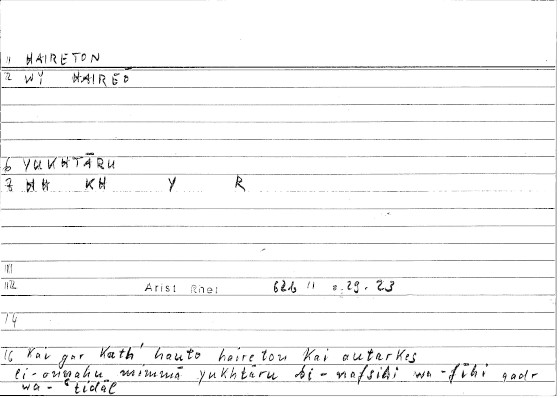 11 HAIRETON
12 WY HAIREŌ
6 YUKHTĀRU
7 HH KH Y R
14
Arist Rhet 62b 11 29.23
16 Kai gar kath' hauto haireton kai autarkes
li-annahu mimmā yukhtāru bi-nafsihi wa-fīhi qadr
wa-'tidāl